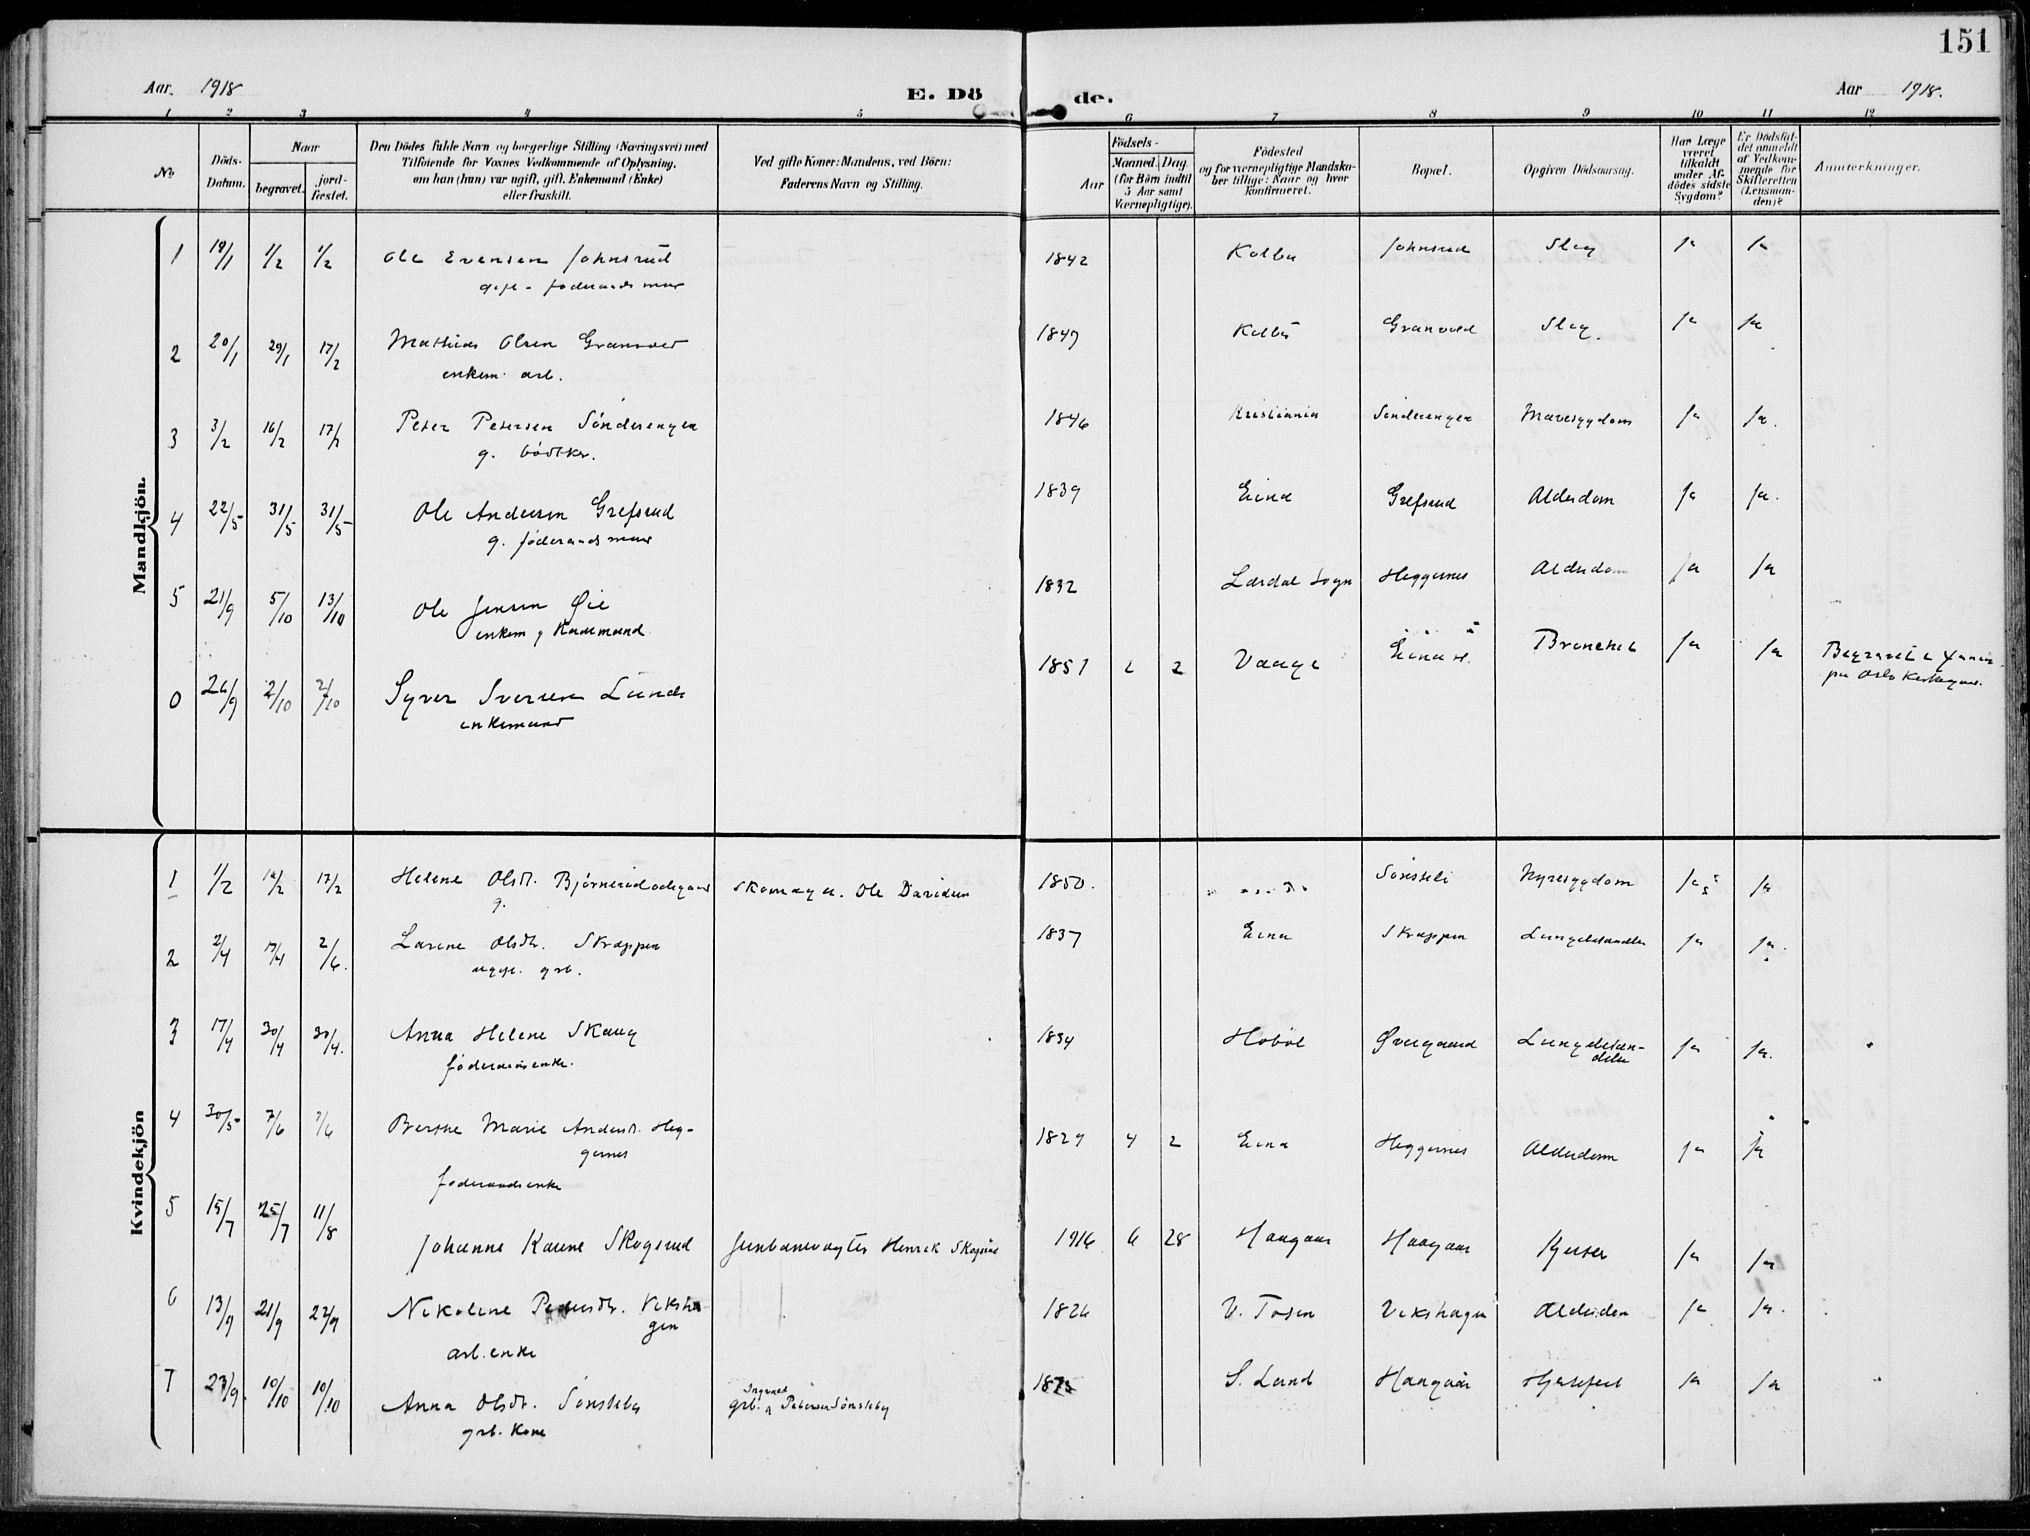 151
Aar. 1918
E. Dö
de.
Aar 1918.
1 2 3 4 5 6 7 8 9 10 11 12
No
Döds-
Datum.
Naar
begravet.
jord-
fæstet.
Den Dödes fulde Navn og borgerlige Stilling (Næringsvei) med
Tilföiende for Voxnes Vedkommende af Oplysning,
om han (hun) var ugift, gift, Enkemand (Enke)
eller fraskilt.
Ved gifte Koner: Mandens, ved Börn:
Faderens Navn og Stilling.
Födsels-
Aar
Maaned. Dag
(for Börn indtil
5 Aar samt
Værnepligtige).
Födested
og for værnepligtige Mandska-
ber tillige: Naar og hvor
konfirmeret.
Bopæl.
Opgiven Dödsaarsag.
Har Læge
været
tilkaldt
under Af-
dödes sidste
Sygdom?
Er Dödsfal-
det anmeldt
af Vedkom-
mende for
Skifteretten
(Lensman-
den)?
Anmærkninger.
Mandkjön.
1 19/1 1/2 1/2 Ole Evensen Johnsrud 1842 Kolbu Johnsrud Slag ja ja
gift - føderaadsmand
2 20/1 29/1 17/2 Mathias Olsen Granvold 1847 Kolbu Granvold Slag. ja ja
enkem. arb.
3 3/2 16/2 17/2 Peter Petersen Sønderengen 1846 Kristiania Sønderengen Mavesygdom ja ja.
g. bødtker.
4 22/5 31/5 31/5 Ole Andersen Grefsrud 1839 Eina Grefsrud Alderdom ja ja.
g. føderaadsmand
5 21/9 5/10 13/10 Ole Jensen Øie 1832 Lærdal Sogn Heggernes Alderdom ja ja
enkem. Kaarmand
26/9 2/10 2/10 Syver Iversen Lunde 1851 2 2 Vaage Eina st. Bronchit ja ja
enkemand
Kvindekjön
1 1/2 16/2 17/2 Helene Olsdt. Bjørnerudødegaard Skomager. Ole Davidsen 1850. Sønsteli Nyresygdom ja ja
g.
2 2/4 17/4 2/6. Larine Olsdtr. Skrappen 1837 Eina Skrappen Lungebetændelse ja ja.
ugift. grb.
3 17/4 30/4 30/4. Anna Helene Skaug 1834 Hobøl Øvergaard Lungebetæn-
delse ja ja.
føderaadsenke.
4 30/5 7/6 7/6 Berthe Marie Andersdt. Heg-
gernes 1829 4 2 Eina Heggernes Alderdom ja ja
føderaadsenke
5 15/7 25/7 11/8 Johanne Karine Skogsrud Jernbanevogter Henrik Skogsrud 1916 6 28 Haagaar Haagaar ja ja
6 13/9 21/9 22/9 Nikoline Pedersdtr. Viksha-
gen 1826 V. Toten Vikshagen Alderdom ja ja.
arb. enke
7 23/9. 10/10 10/10 Anna Olsdtr. Sønsteby grb. Ingvald Petersen Sønsteby 1875 S. Land Haagaar Hjertefeil ja ja
grb. kone